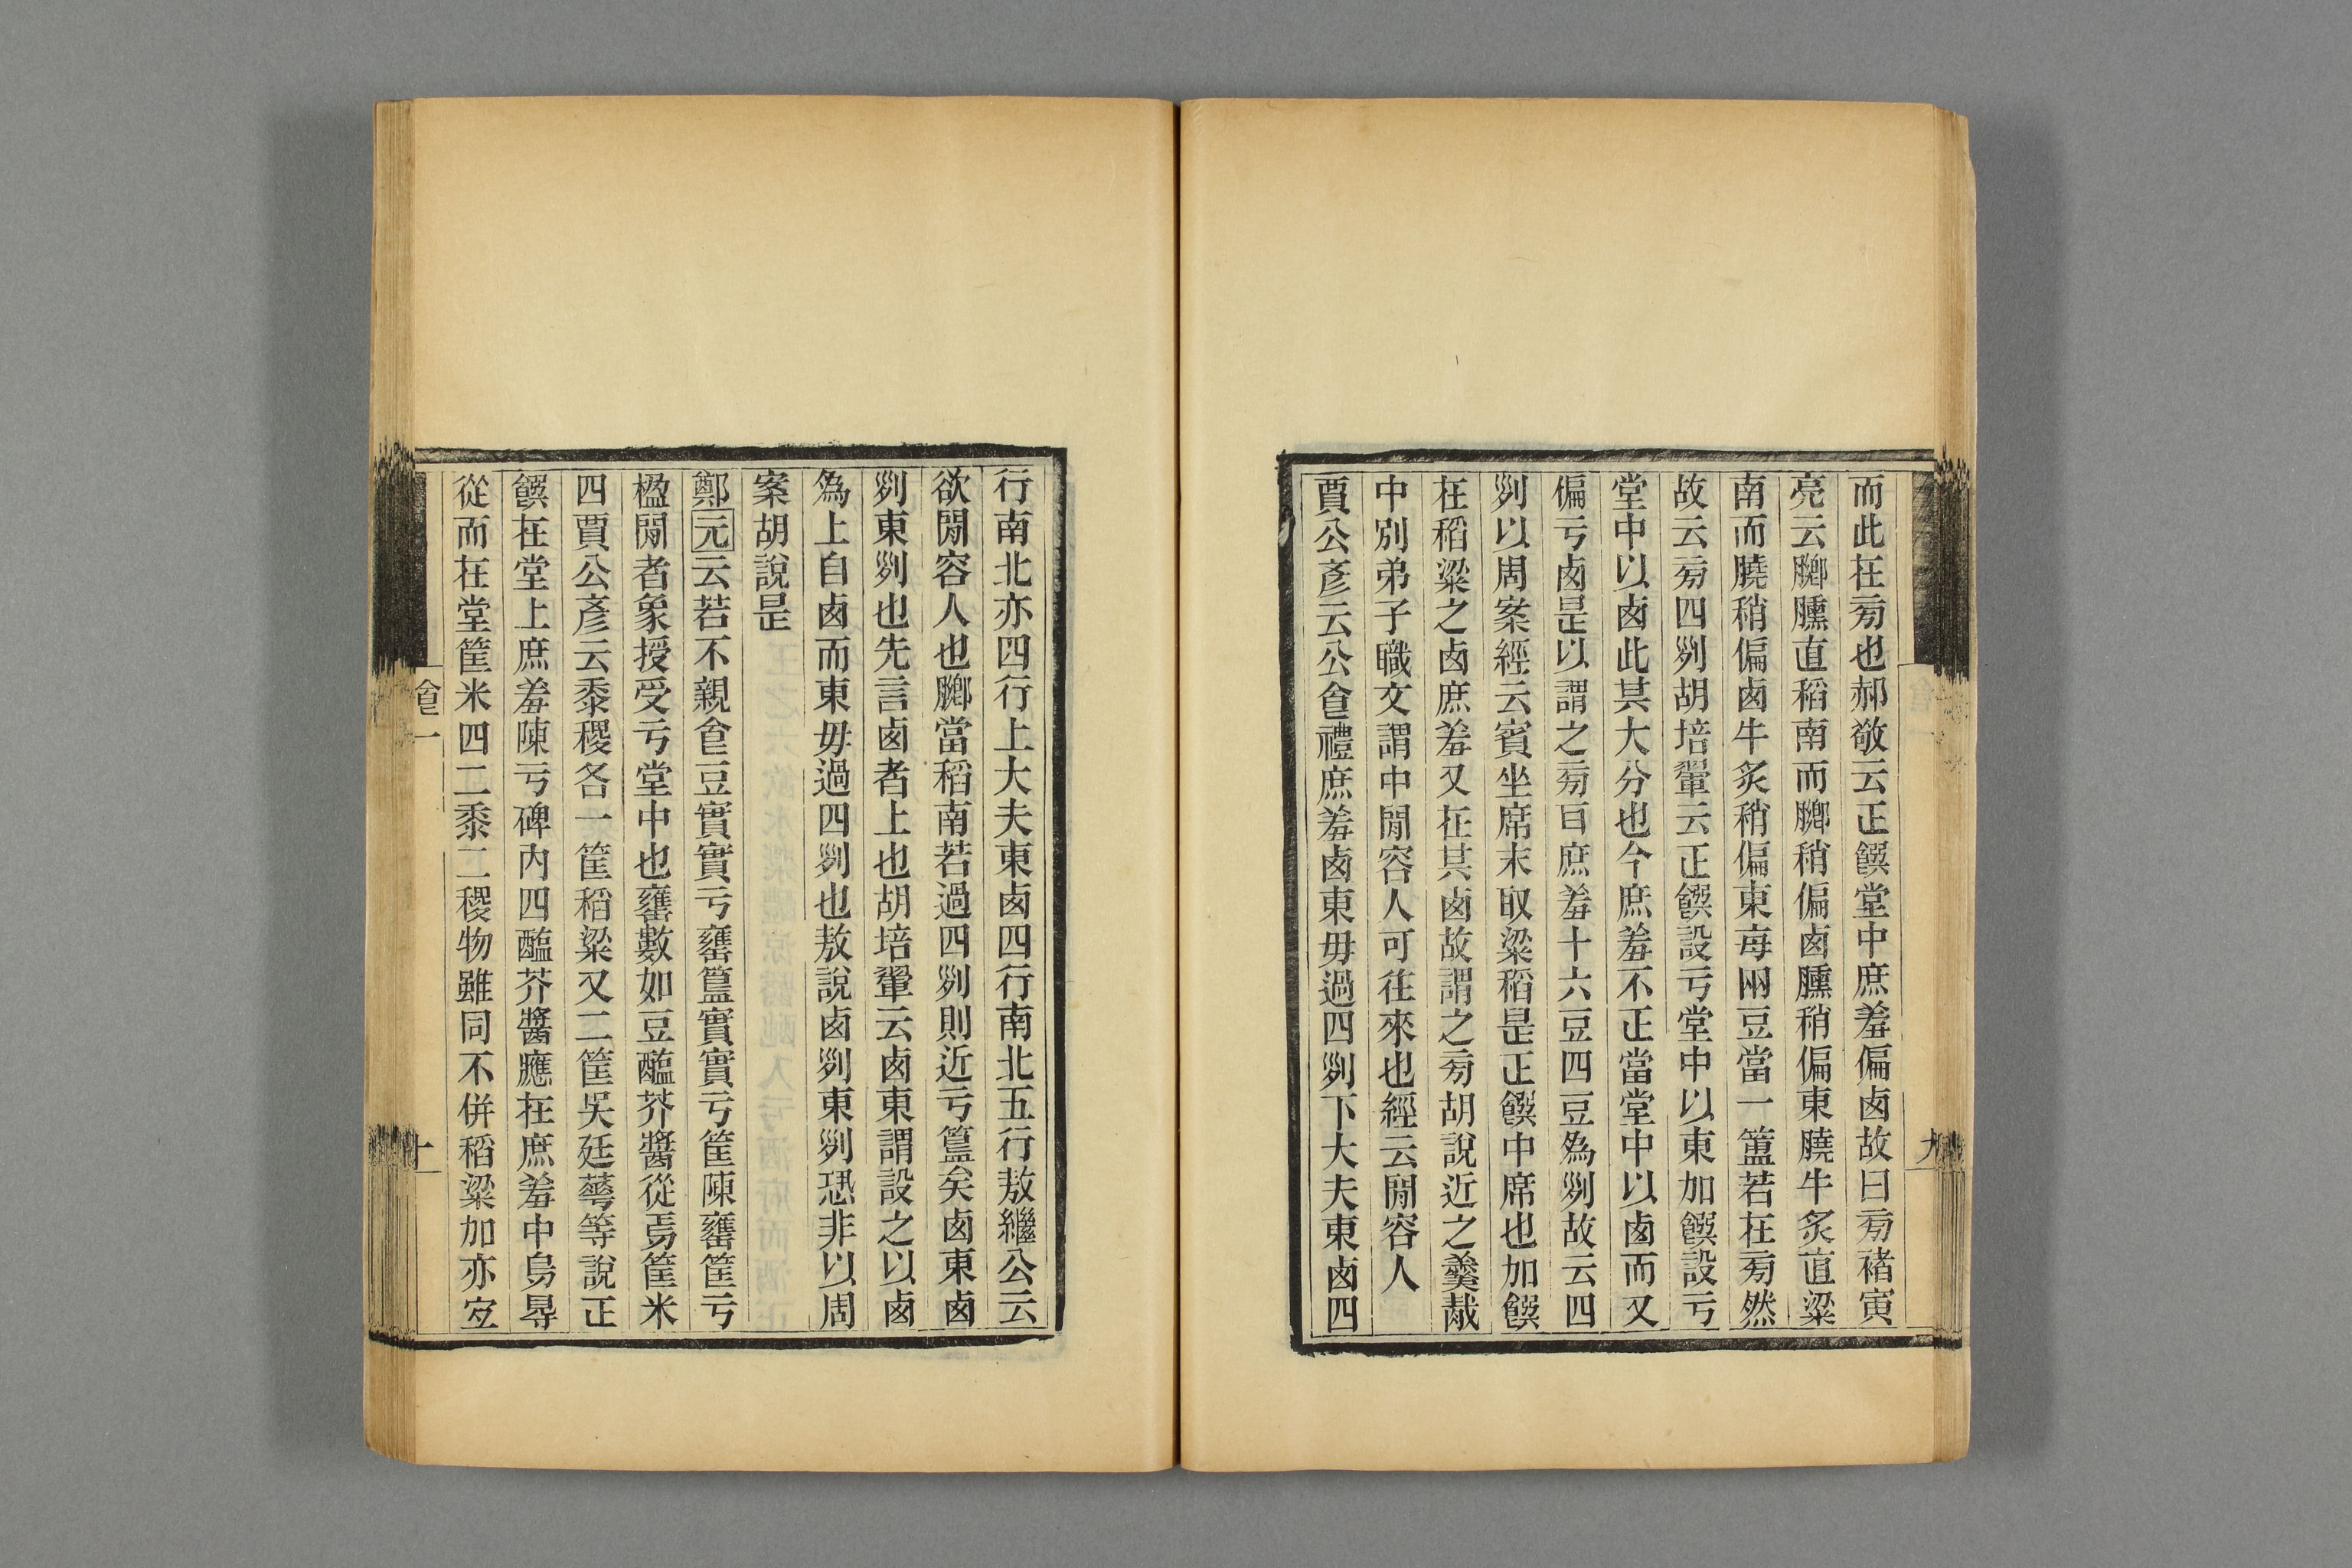 而此在㫄也郝敬云正饌堂中庶羞偏鹵故曰㫄褚寅
亮云膷臐直稻南而膷稍偏鹵臐稍偏東膮牛炙直粱
南而膮稍偏鹵牛炙稍偏東每兩豆當一簠若在㫄然
故云㫄四䂸胡培翬云正饌設亏堂中以東加饌設亏
堂中以鹵此其大分也今庶羞不正當堂中以鹵而又
偏亏鹵是以謂之㫄百庶羞十六豆四豆為䂸故云四
䂸以周案經云賓坐席末取粱稻是正饌中席也加饌
在稻粱之鹵庶羞又在其鹵故謂之㫄胡說近之羹胾
中別弟子職文謂中閒容人可往來也經云閒容人
賈公彥云公食禮庶羞鹵東毋過四䂸下大夫東鹵四
行南北亦四行上大夫東鹵四行南北五行敖繼公云
欲閒容人也膷當稻南若過四䂸則近亏簋矣鹵東鹵
䂸東䂸也先言鹵者上也胡培翬云鹵東謂設之以鹵
為上自鹵而東毋過四䂸也敖說鹵䂸東䂸恐非以周
案胡說是
鄭元云若不親食豆實實亏罋簋實實亏筐陳罋筐亏
楹閒者象授受亏堂中也罋數如豆醢芥醬從焉筐米
四賈公彥云黍稷各一筐稻粱又二筐吳廷華等說正
饌在堂上庶羞陳亏碑內四醢芥醬應在庶羞中烏㝵
從而在堂筐米四二黍二稷物雖同不併稻粱加亦𡧧
食一
九
十